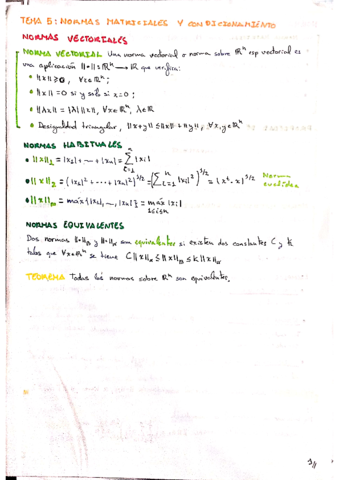 TEMA 5: NORMAS MATRICIALES Y CONDICIONAMIENTO
NORMAS VECTORIALES
NORMA VECTORIAL Una norma vectorial o norma sobre ℝⁿ esp vectorial es
una aplicación ‖•‖: ℝⁿ → ℝ que verifica:
• ‖x‖ ≥ 0, ∀x∈ℝⁿ;
• ‖x‖ = 0 si y solo si x = 0;
• ‖λx‖ = |λ| ‖x‖, ∀x∈ℝⁿ, λ∈ℝ
• Desigualdad triangular, ‖x+y‖ ≤ ‖x‖ + ‖y‖, ∀x,y∈ℝⁿ
NORMAS HABITUALES
• ‖x‖₁ = |x₁| + ⋯ + |xₙ| = ∑ᵢ₌₁ⁿ |xᵢ|
• ‖x‖₂ = (|x₁|² + ⋯ + |xₙ|²)^1/2 = (∑ᵢ₌₁ⁿ |xᵢ|²)^1/2 = (xᵗ·x)^1/2 Norma euclídea
• ‖x‖∞ = máx{|x₁|, ⋯, |xₙ|} = máx 1≤i≤n |xᵢ|
NORMAS EQUIVALENTES
Dos normas ‖•‖β y ‖•‖α son equivalentes si existen dos constantes C y K
tales que ∀x∈ℝⁿ se tiene C‖x‖α ≤ ‖x‖β ≤ K‖x‖α
TEOREMA Todas las normas sobre ℝⁿ son equivalentes.